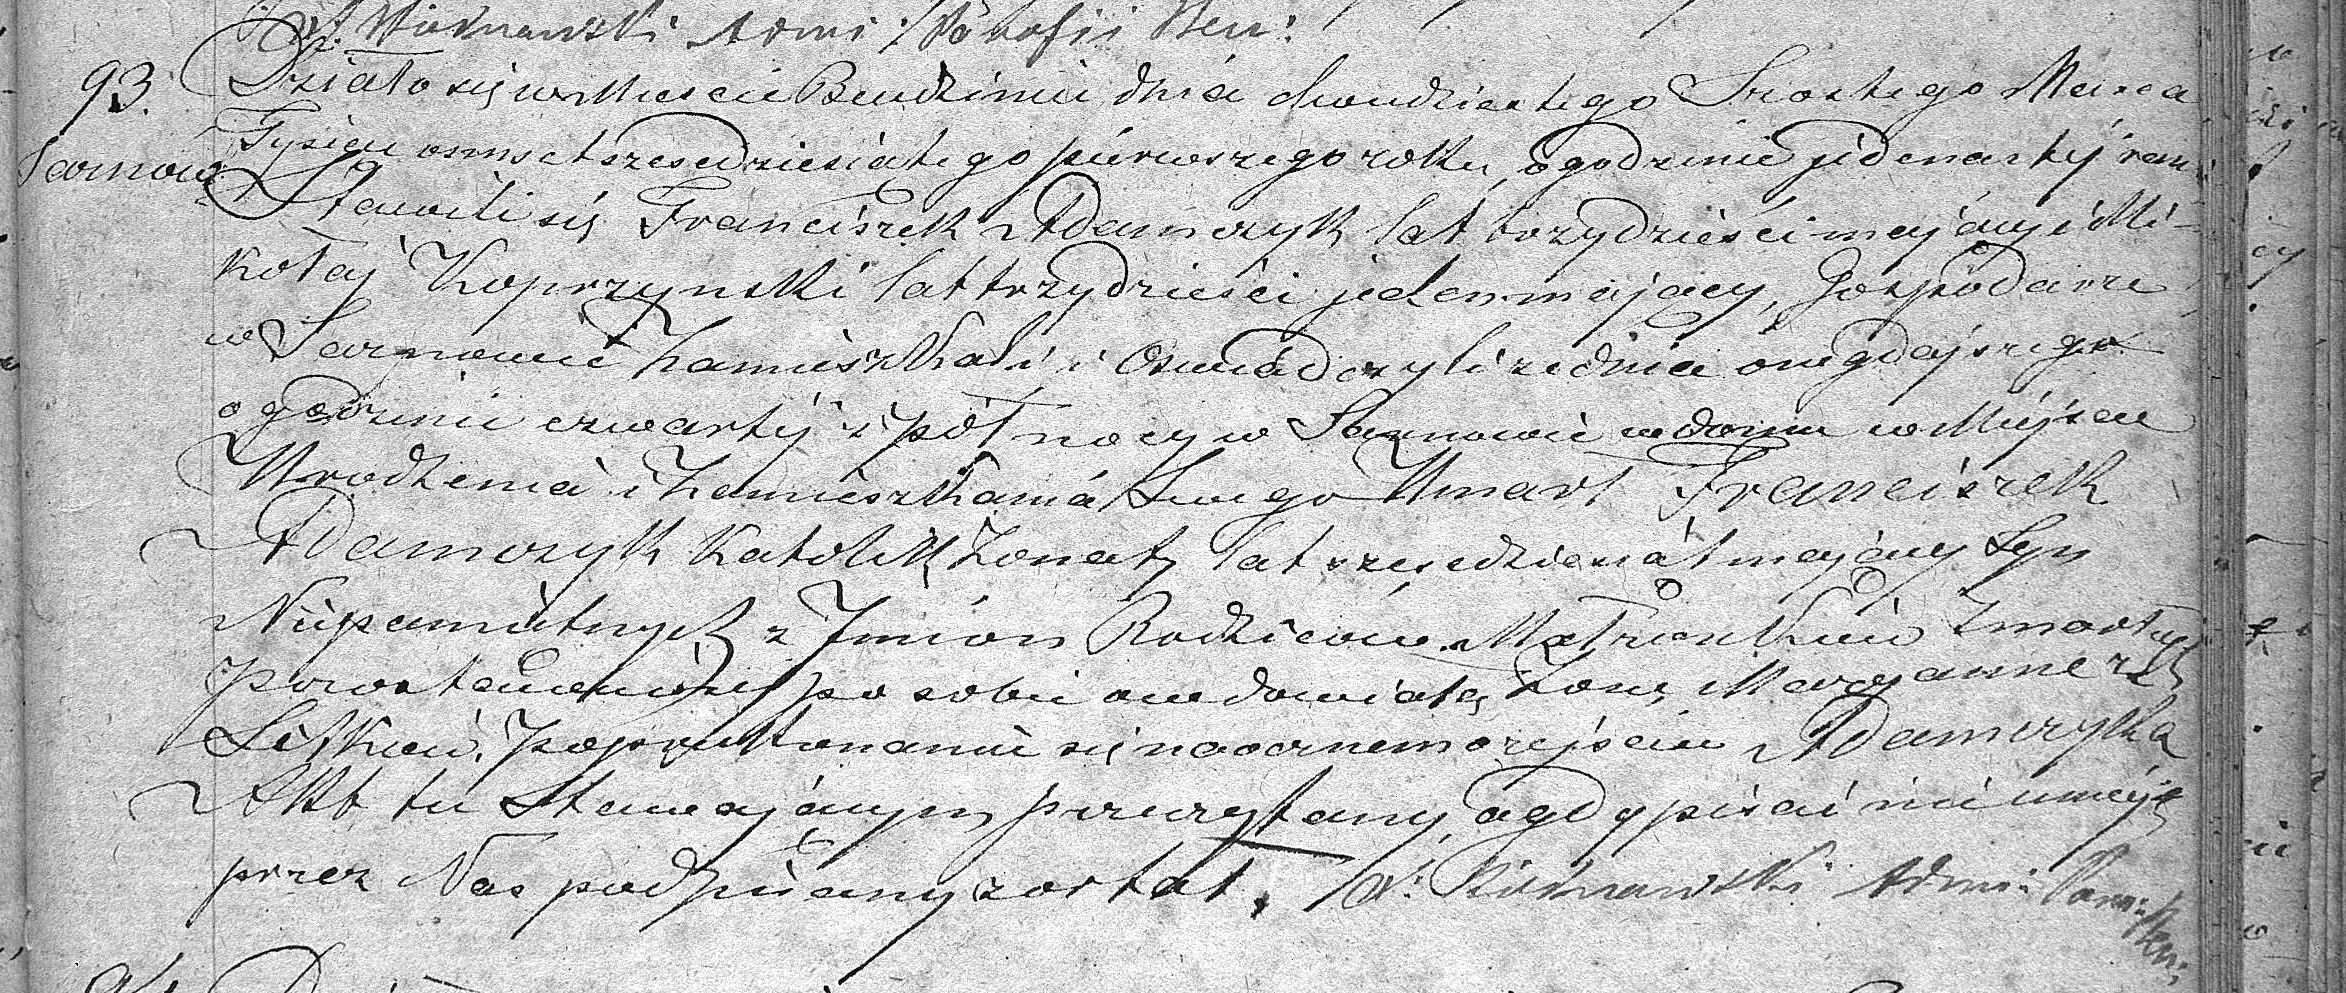 Admi: Parafii Ben:
93. Działo się w Mieście Bendzinie dnia dwudziestego Szostego Marca
Sarnow Tysiąc osmset szescdziesiatego pierwszego roku, o godzinie jedenasty rano
Stawili się Franciszek Adamczyk lat trzydzieści mający i Mi-
kołaj Koprzynski lat trzydzieści jeden mający, Gospodarze
w Sarnowie Zamieszkali i Oswiadczyli ze dnia onegdajszego
o godzinie czwarty z połnocy w Sarnowie w domu w Miejscu
Urodzenia i Zamieszkania Swego Umarł Franciszek
Adamczyk Katolik Zonaty lat szescdziesiąt mający Syn
Niepamietnych z Imion Rodzicow Małżonkow Zmarłych
Pozostawiwszy po sobie owdowiałą Zonę Maryannę z
Sitkow. Po przekonaniu się naocznem o zejściu Adamczyka
Akt tu Stawającym przeczytany, a gdy pisać nie umieją
przez Nas podpisany został. Admi: Para: Ben:
94.